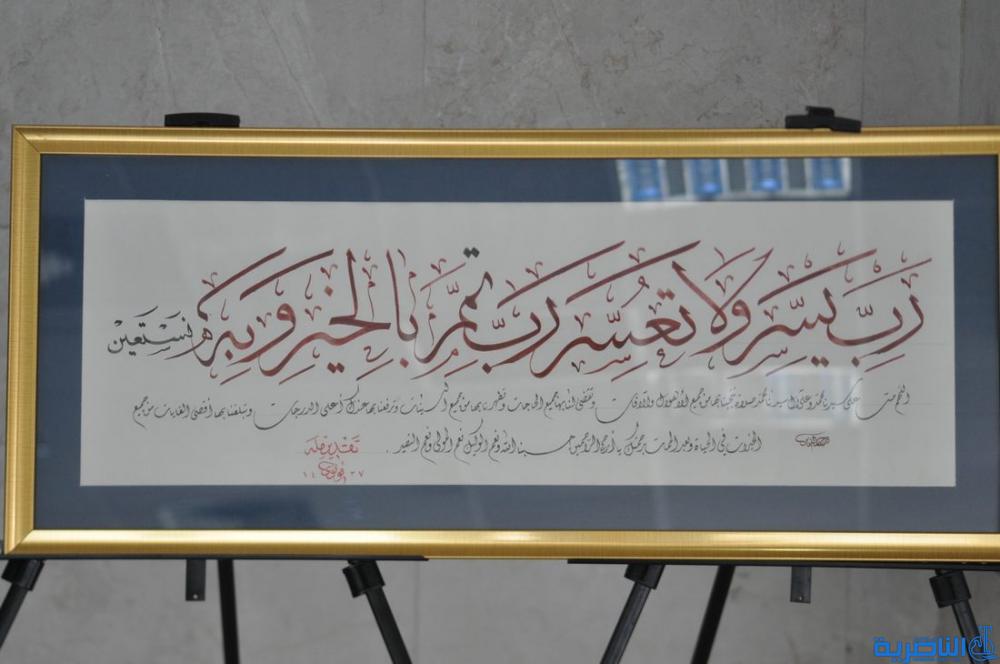 رَبِّ يَسِّرْ وَلَا تُعَسِّرْ رَبِّ تَمِّمْ بِالْخَيْرِ وَبِهِ نَسْتَعِيْن
اللهم صل على سيدنا محمد وعلى آل سيدنا محمد صلاة تنجينا بها من جميع الأهوال والآفات وتقضي لنا بها جميع الحاجات وتطهرنا بها من جميع السيئات وترفعنا بها عندك أعلى الدرجات وتبلغنا بها أقصى الغايات من جميع
الخيرات في الحياة وبعد الممات برحمتك يا أرحم الراحمين حسبنا الله ونعم الوكيل نعم المولى ونعم النصير .
الناصرية